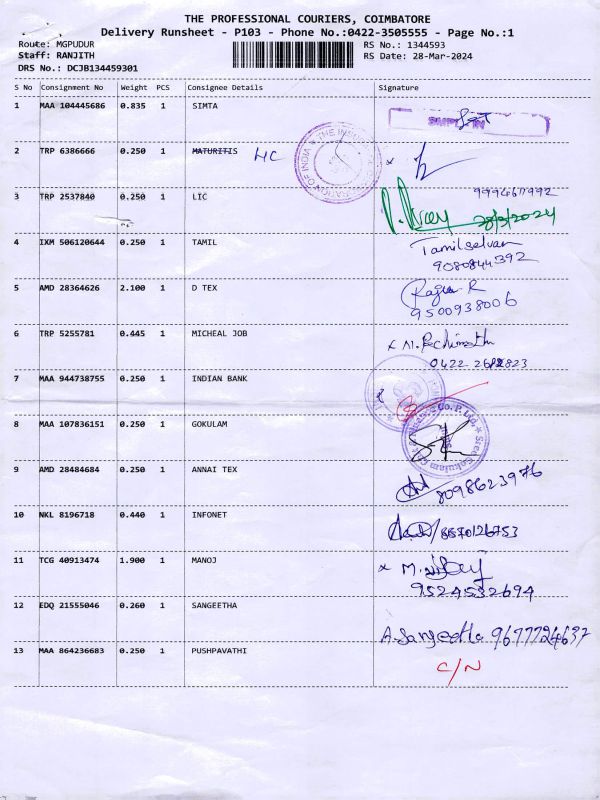 THE PROFESSIONAL COURIERS, COIMBATORE
Delivery Runsheet - P103 - Phone No.:0422-3505555 - Page No.:1
Route: MGPUDUR RS No.: 1344593
Staff: RANJITH RS Date: 28-Mar-2024
DRS No.: DCJB134459301
S No Consignment No Weight PCS Consignee Details Signature
1 MAA 104445686 0.835 1 SIMTA
2 TRP 6386666 0.250 1 MATURITIS LIC
3 TRP 2537840 0.250 1 LIC 9994611992
28/3/2024
4 IXM 506120644 0.250 1 TAMIL Tamilselvan
9080844392
5 AMD 28364626 2.100 1 D TEX Rajan R
9500938006
6 TRP 5255781 0.445 1 MICHEAL JOB
0422-2682823
7 MAA 944738755 0.250 1 INDIAN BANK
8 MAA 107836151 0.250 1 GOKULAM
9 AMD 28484684 0.250 1 ANNAI TEX 8098623976
10 NKL 8196718 0.440 1 INFONET 8870126753
11 TCG 40913474 1.900 1 MANOJ
9524532694
12 EDQ 21555046 0.260 1 SANGEETHA A. Sangeetha 9677724637
13 MAA 864236683 0.250 1 PUSHPAVATHI C/N